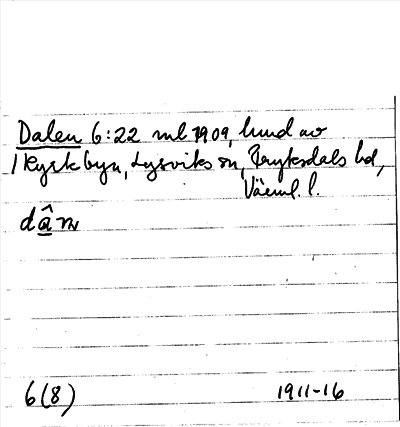 Dalen 6:22 ml 1909, hmd av
1 Kyrkbyn, Lysviks sn, Fryksdals hd,
Värml. l.
dâ̱n
6(8) 1911-16